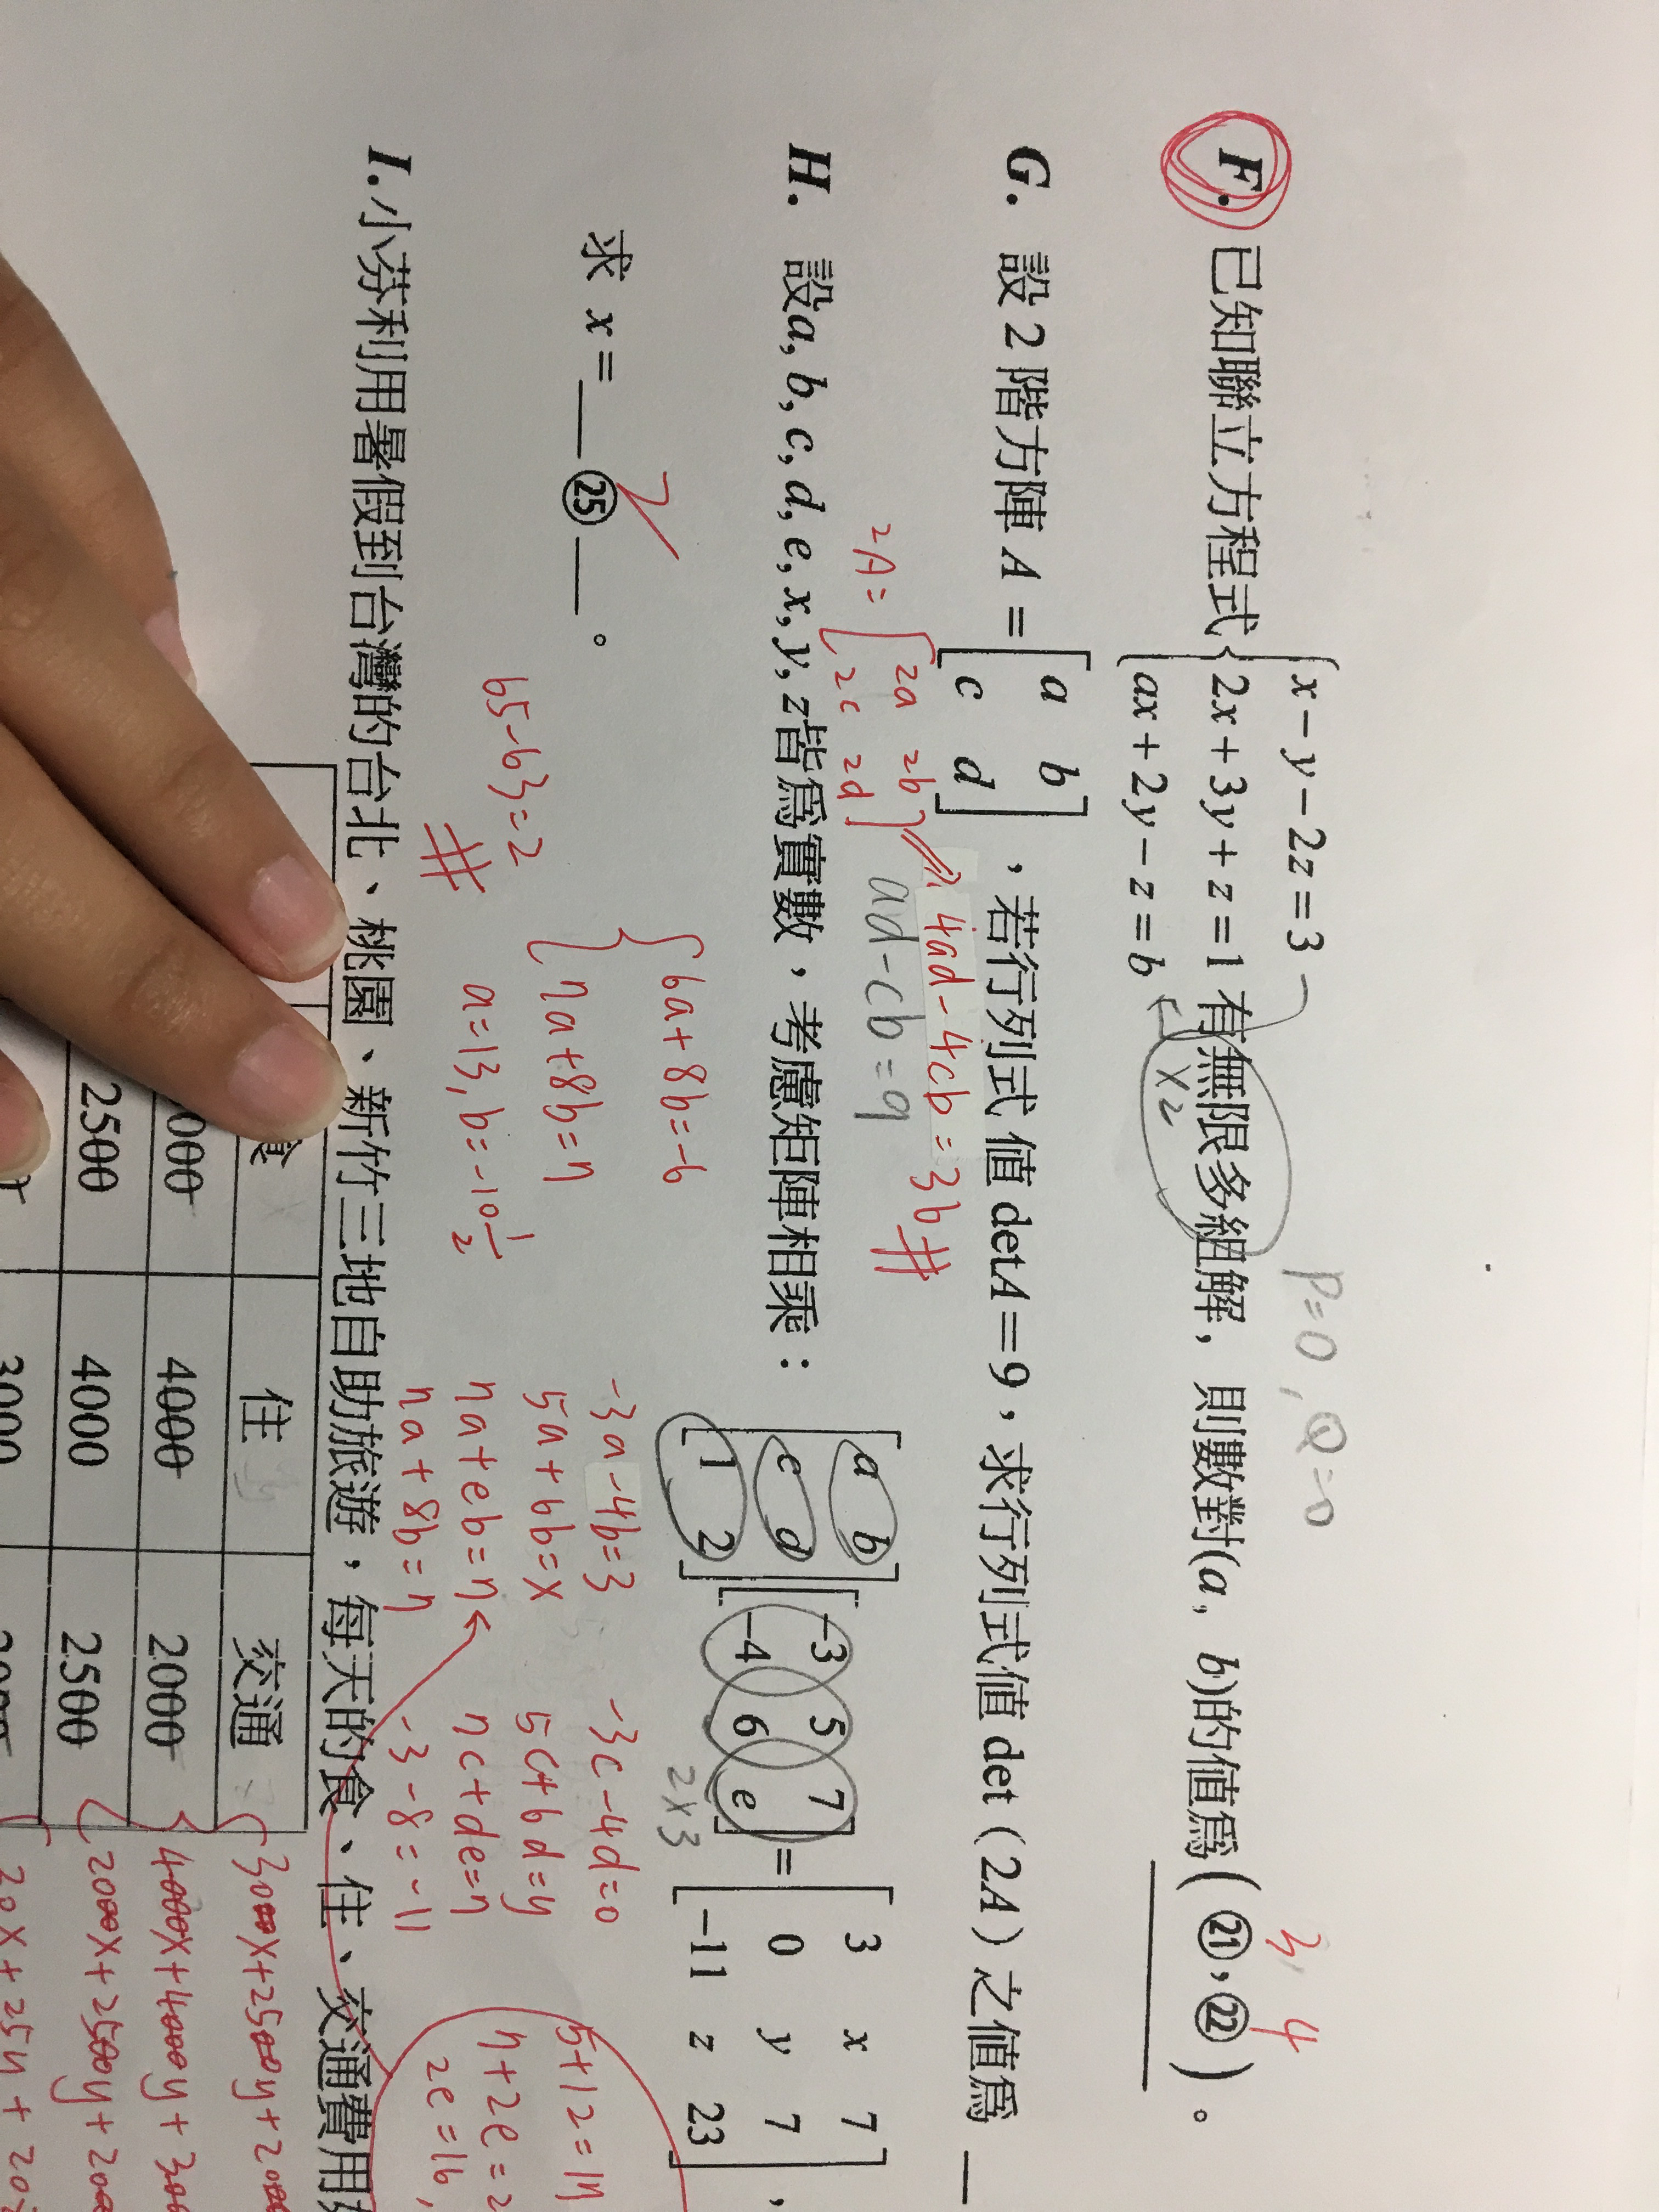 P=0, Q=0
F. 已知聯立方程式 { x－y－2z＝3
2x＋3y＋z＝1 有無限多組解，則數對(a，b)的值為(㉑,㉒)。
ax＋2y－z＝b
×2
3, 4
G. 設 2 階方陣 A = [a b
c d]，若行列式值 detA＝9，求行列式值 det（2A）之值為
2A= [2a 2b
2c 2d] 4ad-4cb=36 #
ad-cb=9
H. 設a, b, c, d, e, x, y, z皆為實數，考慮矩陣相乘： [a b
c d
1 2] [-3 5 7
-4 6 e] = [3 x 7
0 y 7
-11 z 23]，
2×3
求 x = ㉕ 。
2
6a+8b=-6
7a+8b=7
a=13, b=-10 1/2
65-63=2
#
-3a-4b=3
5a+6b=x
7a+eb=7
7a+8b=7
-3c-4d=0
5c+6d=y
7c+de=7
-3-8=-11
5+12=17
7+2e=2
2e=16,
I. 小芬利用暑假到台灣的台北、桃園、新竹三地自助旅遊，每天的食、住、交通費用
食 住 交通
000 4000 2000
2500 4000 2500
3000
3000x+2500y+2000
4000x+4000y+300
2000x+2500y+200
20x+25y+20